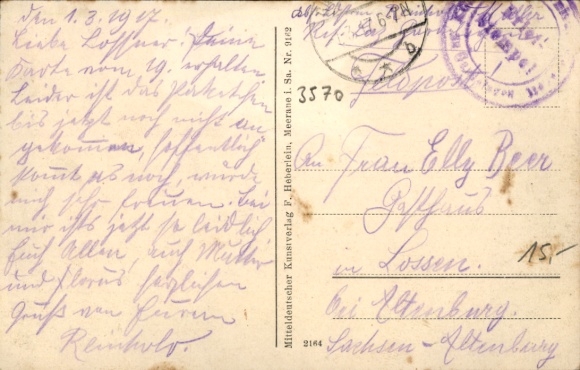 den 1.3.1917.
Liebe Lossner. Deine
Karte vom 19. erhalten
Leider ist das Päketchen
bis jetzt noch nicht an
gekommen, hoffentlich
kommt es noch, würde
mich sehr freuen. Bei
mir ists jetzt so leidlich
Euch Allen, auch Mutter
und herzlichen
Gruß von Eurem
Reinhold.
Mitteldeutscher Kunstverlag F. Heberlein, Meerane i. Sa. Nr. 9162
2164
3570
Feldpost
An Frau Elly Beer
Gasthaus
in Lossen.
bei Altenburg.
Sachsen-Altenburg
15,-